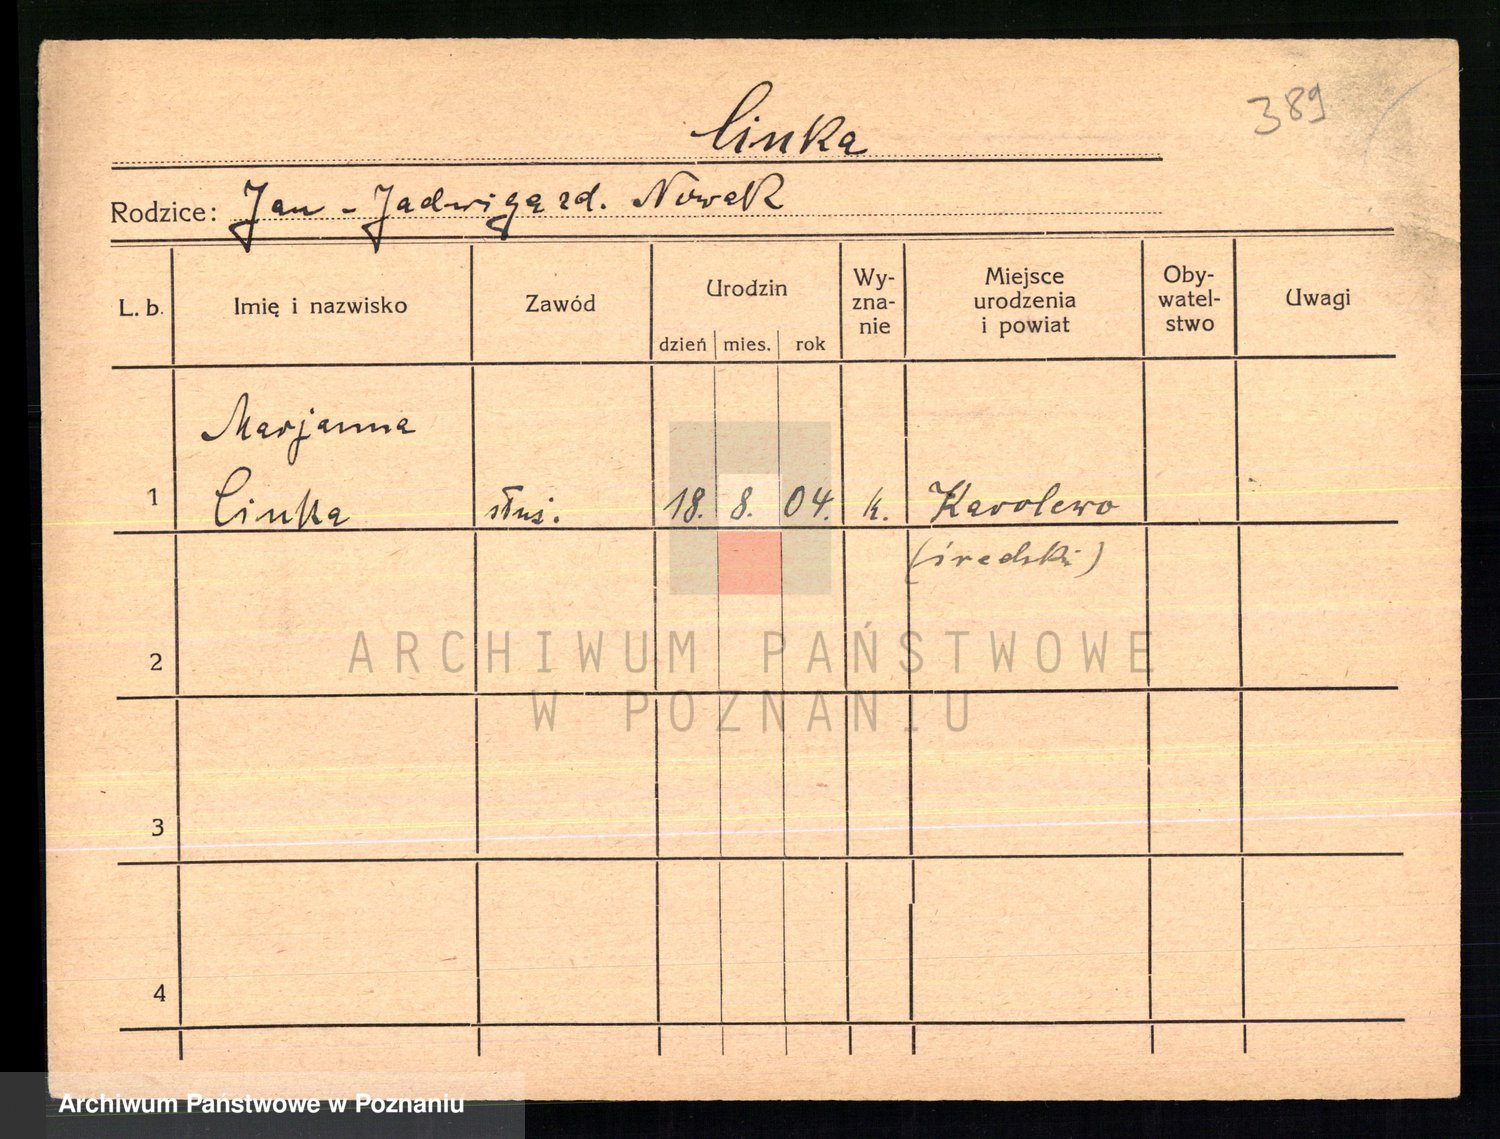 389
Linka
Rodzice: Jan - Jadwiga zd. Nowak
L. b. Imię i nazwisko Zawód Urodzin dzień mies. rok Wy-zna-nie Miejsce urodzenia i powiat Oby-watel-stwo Uwagi
Marjanna
1 Linka służ. 18. 8. 04. k. Karolewo
(średzki)
2
ARCHIWUM PAŃSTWOWE
W POZNANIU
3
4
Archiwum Państwowe w Poznaniu